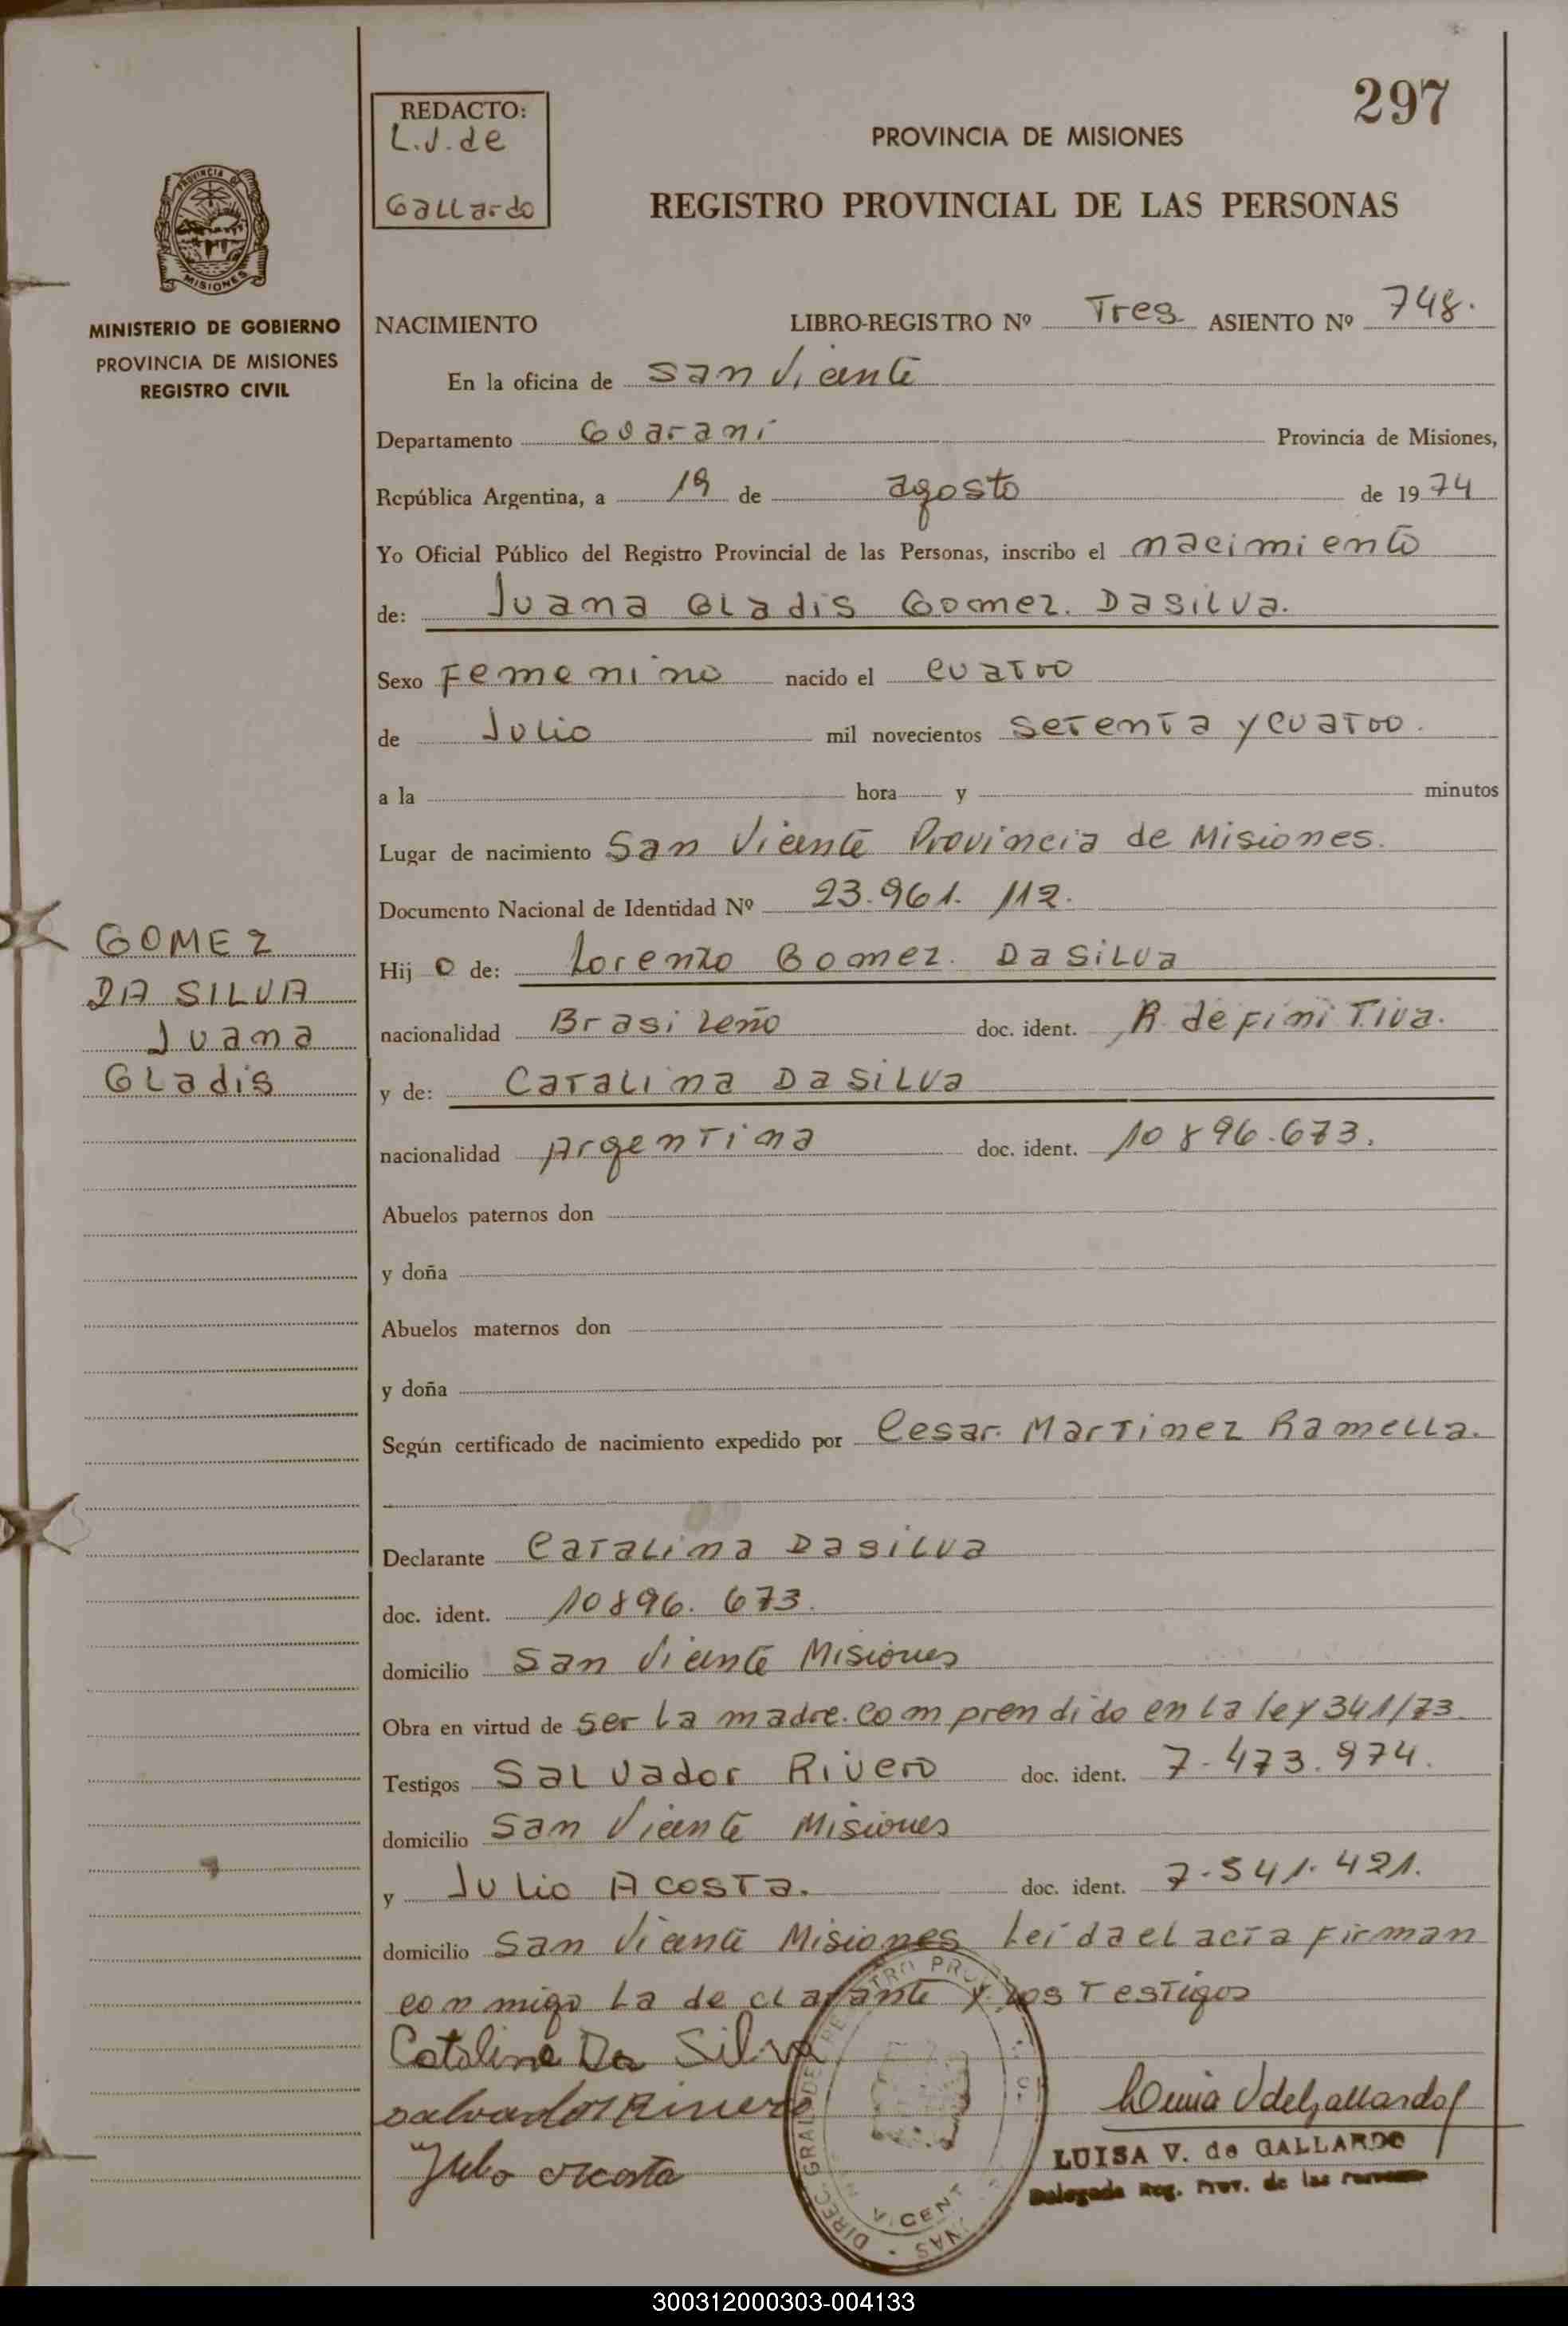 297
REDACTO:
L.V. de
Gallardo
PROVINCIA DE MISIONES
REGISTRO PROVINCIAL DE LAS PERSONAS
PROVINCIA DE
MISIONES
MINISTERIO DE GOBIERNO
PROVINCIA DE MISIONES
REGISTRO CIVIL
NACIMIENTO LIBRO-REGISTRO Nº Tres ASIENTO Nº 748.
En la oficina de San Vicente
Departamento Guaraní Provincia de Misiones,
República Argentina, a 19 de agosto de 1974
Yo Oficial Público del Registro Provincial de las Personas, inscribo el nacimiento
de: Juana Gladis Gomez. Da Silva.
Sexo Femenino nacido el cuatro
de Julio mil novecientos setenta y cuatro.
a la hora y minutos
Lugar de nacimiento San Vicente Provincia de Misiones.
Documento Nacional de Identidad Nº 23.961.112.
GOMEZ
DA SILVA
Juana
Gladis
Hij o de: Lorenzo Gomez. Da Silva
nacionalidad Brasileño doc. ident. R. definitiva.
y de: Catalina Da Silva
nacionalidad Argentina doc. ident. 10896.673.
Abuelos paternos don
y doña
Abuelos maternos don
y doña
Según certificado de nacimiento expedido por Cesar Martinez Ramella.
Declarante Catalina Da Silva
doc. ident. 10896.673.
domicilio San Vicente Misiones
Obra en virtud de ser la madre. comprendido en la ley 341/73
Testigos Salvador Rivero doc. ident. 7.473.974.
domicilio San Vicente Misiones
y Julio Acosta. doc. ident. 7.541.421.
domicilio San Vicente Misiones Leída el acta firman
conmigo la declarante y los testigos
Catalina Da Silva
Salvador Rivero
Julio Acosta
Luisa V de Gallardo
LUISA V. de GALLARDO
Delegada Reg. Prov. de las Personas
300312000303-004133